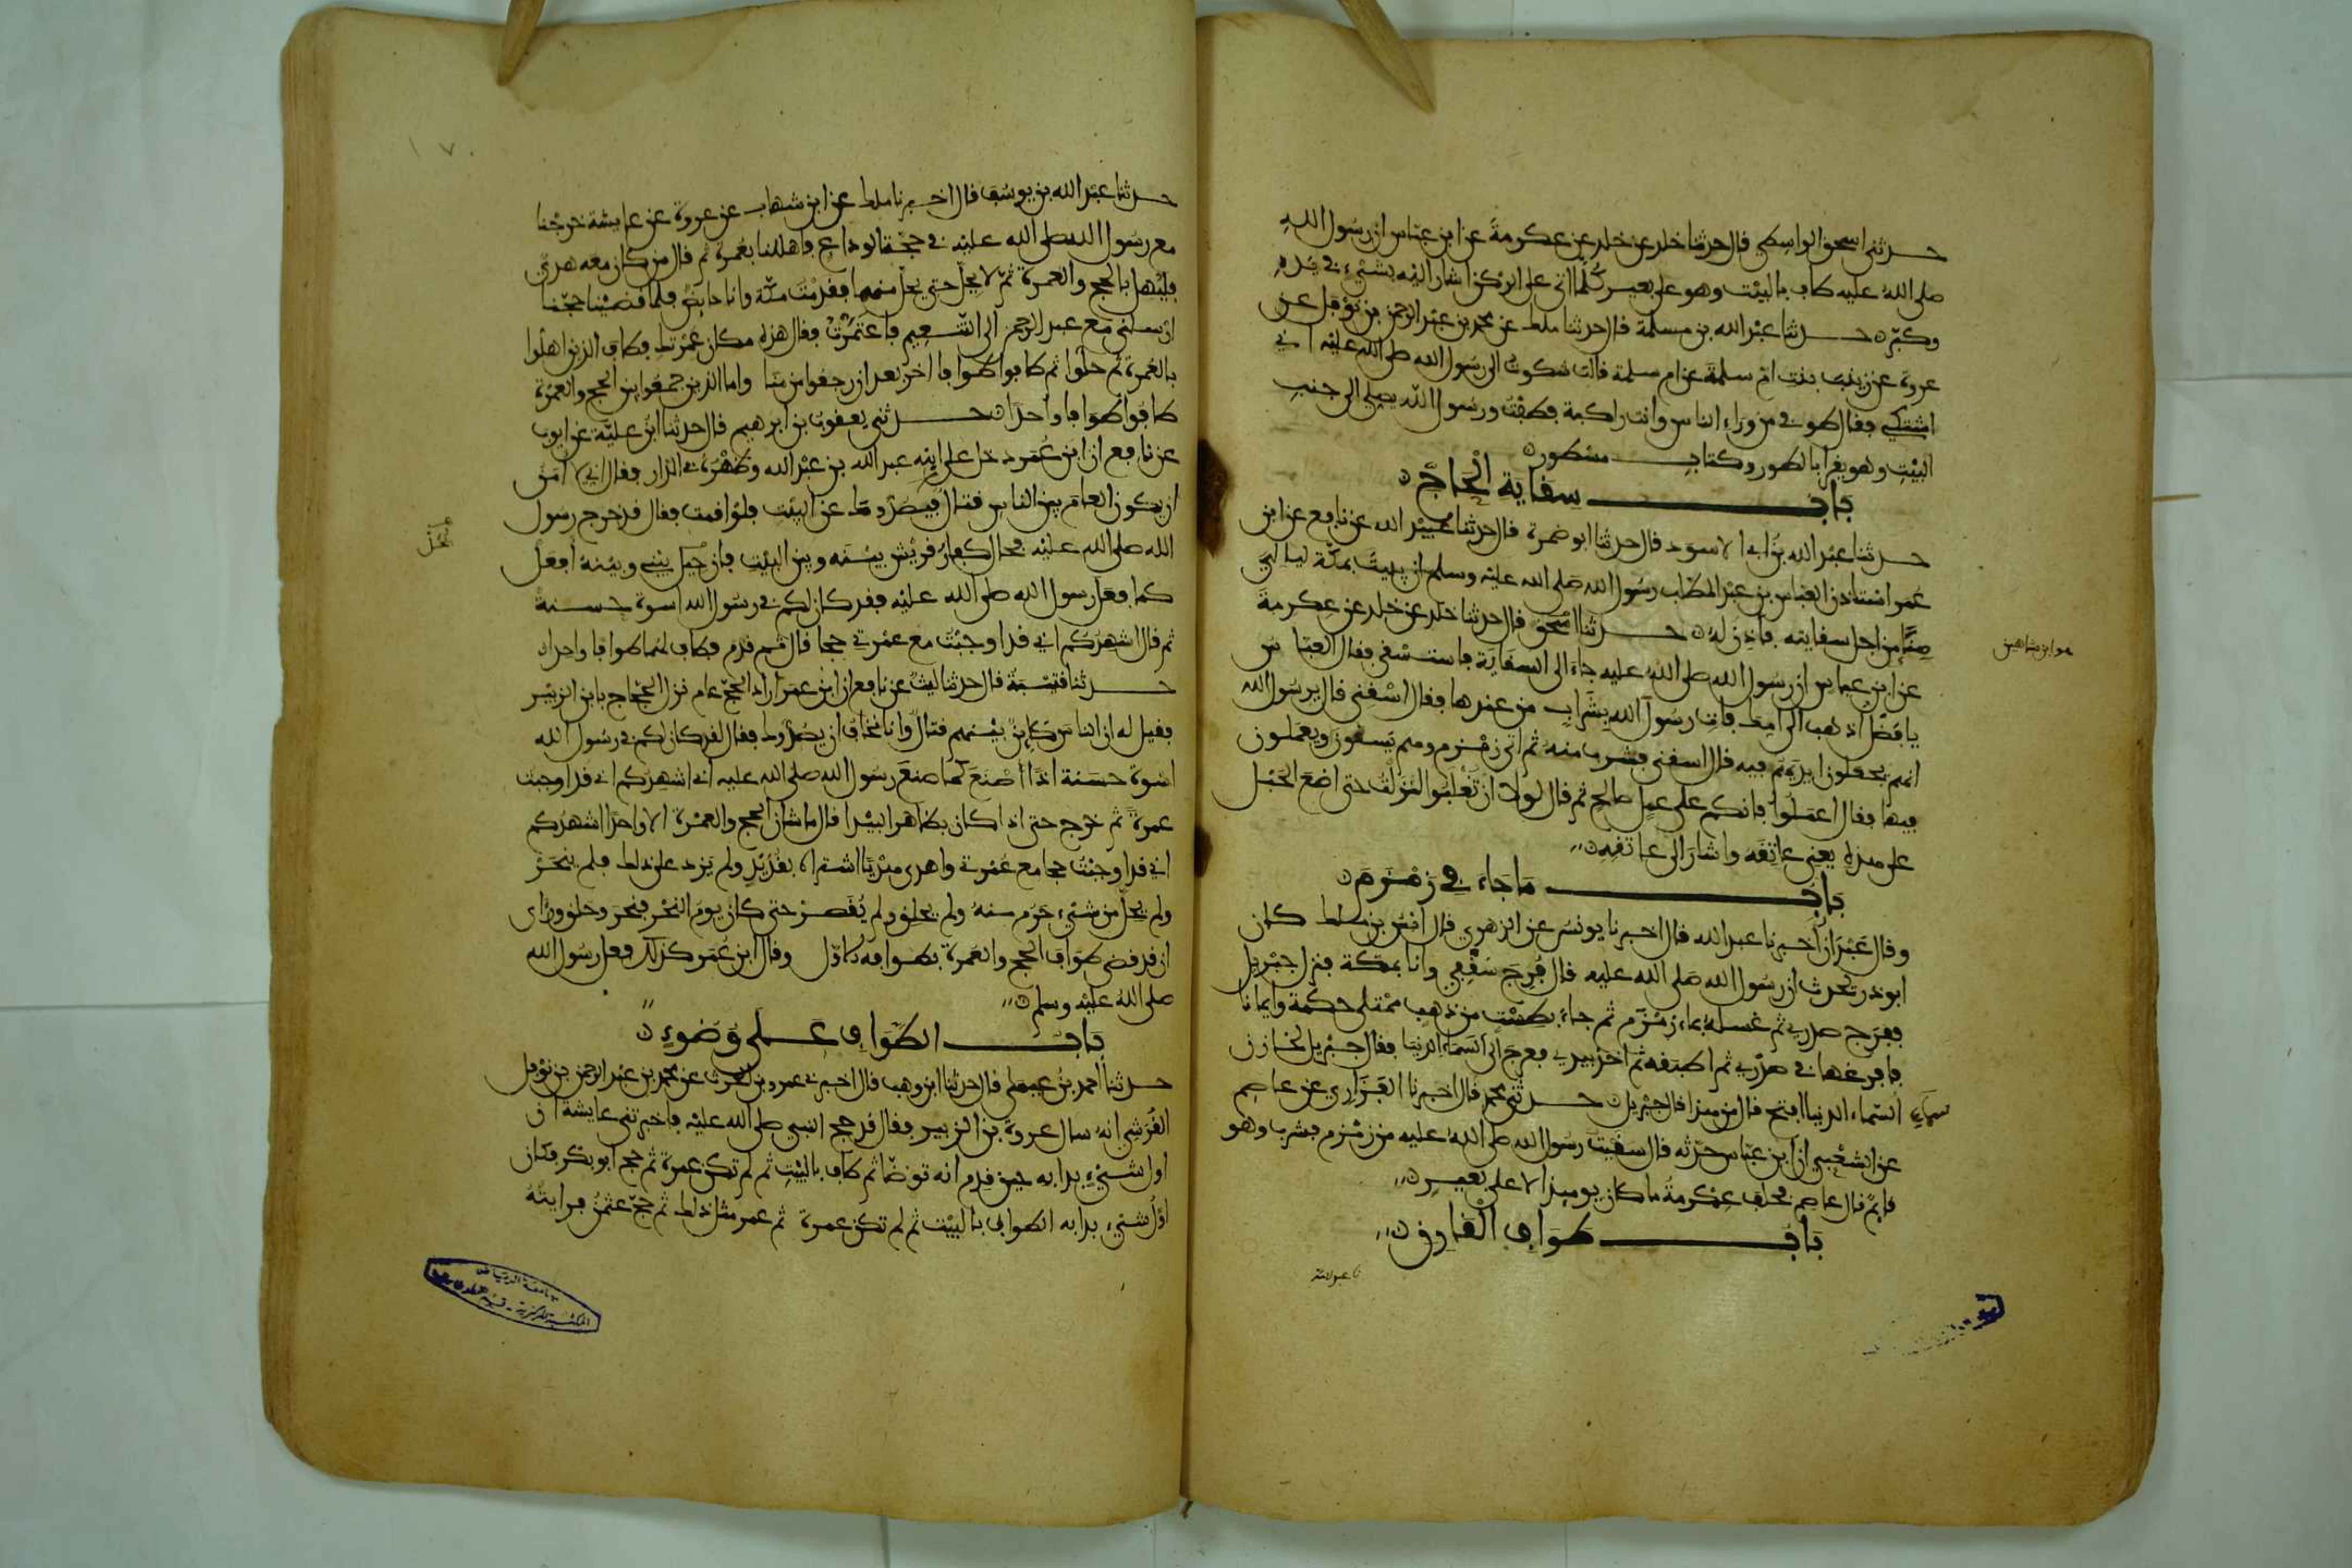 حدثني اسحق الواسطي قال حدثنا خلد عن خلد عن عكرمة عن ابن عباس ان رسول الله
صلى الله عليه طاف بالبيت وهو على بعير كلما اتى على الركن اشار اليه بشيء في يده
وكبر حدثنا عبد الله بن مسلمة قال حدثنا ملك عن محمد بن عبد الرحمن بن نوفل عن
عروة عن زينب بنت ام سلمة عن ام سلمة قالت شكوت الى رسول الله صلى الله عليه اني
اشتكي فقال طوفي من وراء الناس وانت راكبة فطفت ورسول الله يصلي الى جنب
البيت وهو يقرا بالطور وكتاب مسطور
باب سقاية الحاج
حدثنا عبد الله بن ابي الاسود قال حدثنا ابو ضمرة قال حدثنا عبيد الله عن نافع عن ابن
عمر استاذن العباس بن عبد المطلب رسول الله صلى الله عليه وسلم ان يبيت بمكة ليالي
منى من اجل سقايته فاذن له حدثنا اسحق قال حدثنا خلد عن خلد عن عكرمة
هو ابن شاهين
عن ابن عباس ان رسول الله صلى الله عليه جاء الى السقاية فاستسقى فقال العباس
يا فضل اذهب الى امك فات رسول الله بشراب من عندها فقال اسقني قال يرسول الله
انهم يجعلون ايديهم فيه قال اسقني فشرب منه ثم اتى زمزم وهم يسقون ويعملون
فيها فقال اعملوا فانكم على عمل صالح ثم قال لولا ان تغلبوا لنزلت حتى اضع الحبل
على هذه يعني عاتقه واشار الى عاتقه
باب ما جاء في زمزم
وقال عبدان اخبرنا عبد الله قال اخبرنا يونس عن الزهري قال انس بن ملك كان
ابو ذر يحدث ان رسول الله صلى الله عليه قال فرج سقفي وانا بمكة فنزل جبريل
ففرج صدري ثم غسله بماء زمزم ثم جاء بطست من ذهب ممتلي حكمة وايمانا
فافرغها في صدري ثم اطبقه ثم اخذ بيدي فعرج الى السماء الدنيا فقال جبريل لخازن
سماء السماء الدنيا افتح قال من هذا قال جبريل حدثني محمد قال اخبرنا الفزاري عن عاصم
عن الشعبي ان ابن عباس حدثه قال سقيت رسول الله صلى الله عليه من زمزم فشرب وهو
قايم قال عاصم فحلف عكرمة ما كان يوميذ الا على بعير
باب طواف القارن
نا عبد الله
حدثنا عبد الله بن يوسف قال اخبرنا ملك عن ابن شهاب عن عروة عن عايشة خرجنا
مع رسول الله صلى الله عليه في حجة الوداع فاهللنا بعمرة ثم قال من كان معه هدي
فليهل بالحج والعمرة ثم لا يحل حتى يحل منهما فقدمت مكة وانا حايض فلما قضينا حجنا
ارسلني مع عبد الرحمن الى التنعيم فاعتمرت فقال هذه مكان عمرتك فطاف الذين اهلوا
بالعمرة ثم حلوا ثم طافوا طوافا اخر بعد ان رجعوا من منا واما الذين جمعوا بين الحج والعمرة
طافوا طوافا واحدا حدثني يعقوب بن ابرهيم قال حدثنا ابن علية عن ايوب
عن نافع ان ابن عمر دخل على ابنه عبد الله بن عبد الله وظهره في الدار فقال اني لا امن
ان يكون العام بين الناس قتال فيصدوك عن البيت فلو اقمت فقال قد خرج رسول
الله صلى الله عليه فحال كفار قريش بينه وبين البيت فان حيل بيني وبينه افعل
يحل
كما فعل رسول الله صلى الله عليه فقد كان لكم في رسول الله اسوة حسنة
ثم قال اشهدكم اني قد اوجبت مع عمرتي حجا قال ثم قدم فطاف لهما طوافا واحدا
حدثنا قتيبة قال حدثنا ليث عن نافع ان ابن عمر اراد الحج عام نزل الحجاج بابن الزبير
فقيل له ان الناس كاين بينهم قتال وانا نخاف ان يصدوك فقال لقد كان لكم في رسول الله
اسوة حسنة اذا اصنع كما صنع رسول الله صلى الله عليه اني اشهدكم اني قد اوجبت
عمرة ثم خرج حتى اذا كان بظاهر البيدا قال ما شان الحج والعمرة الا واحدا اشهدكم
اني قد اوجبت حجا مع عمرتي واهدى هديا اشتراه بقديد ولم يزد على ذلك فلم ينحر
ولم يحل من شيء حرم منه ولم يحلق ولم يقصر حتى كان يوم النحر فنحر وحلق وراى
ان قد قضى طواف الحج والعمرة بطوافه الاول وقال ابن عمر كذلك فعل رسول الله
صلى الله عليه وسلم
باب الطواف على وضوء
حدثنا احمد بن عيسى قال حدثنا ابن وهب قال اخبرني عمرو بن الحرث عن محمد بن عبد الرحمن بن نوفل
القرشي انه سال عروة بن الزبير فقال قد حج النبي صلى الله عليه فاخبرتني عايشة ان
اول شيء بدا به حين قدم انه توضا ثم طاف بالبيت ثم لم تكن عمرة ثم حج ابو بكر فكان
اول شيء بدا به الطواف بالبيت ثم لم تكن عمرة ثم عمر مثل ذلك ثم حج عثمن فرايته
جامعة الرياض